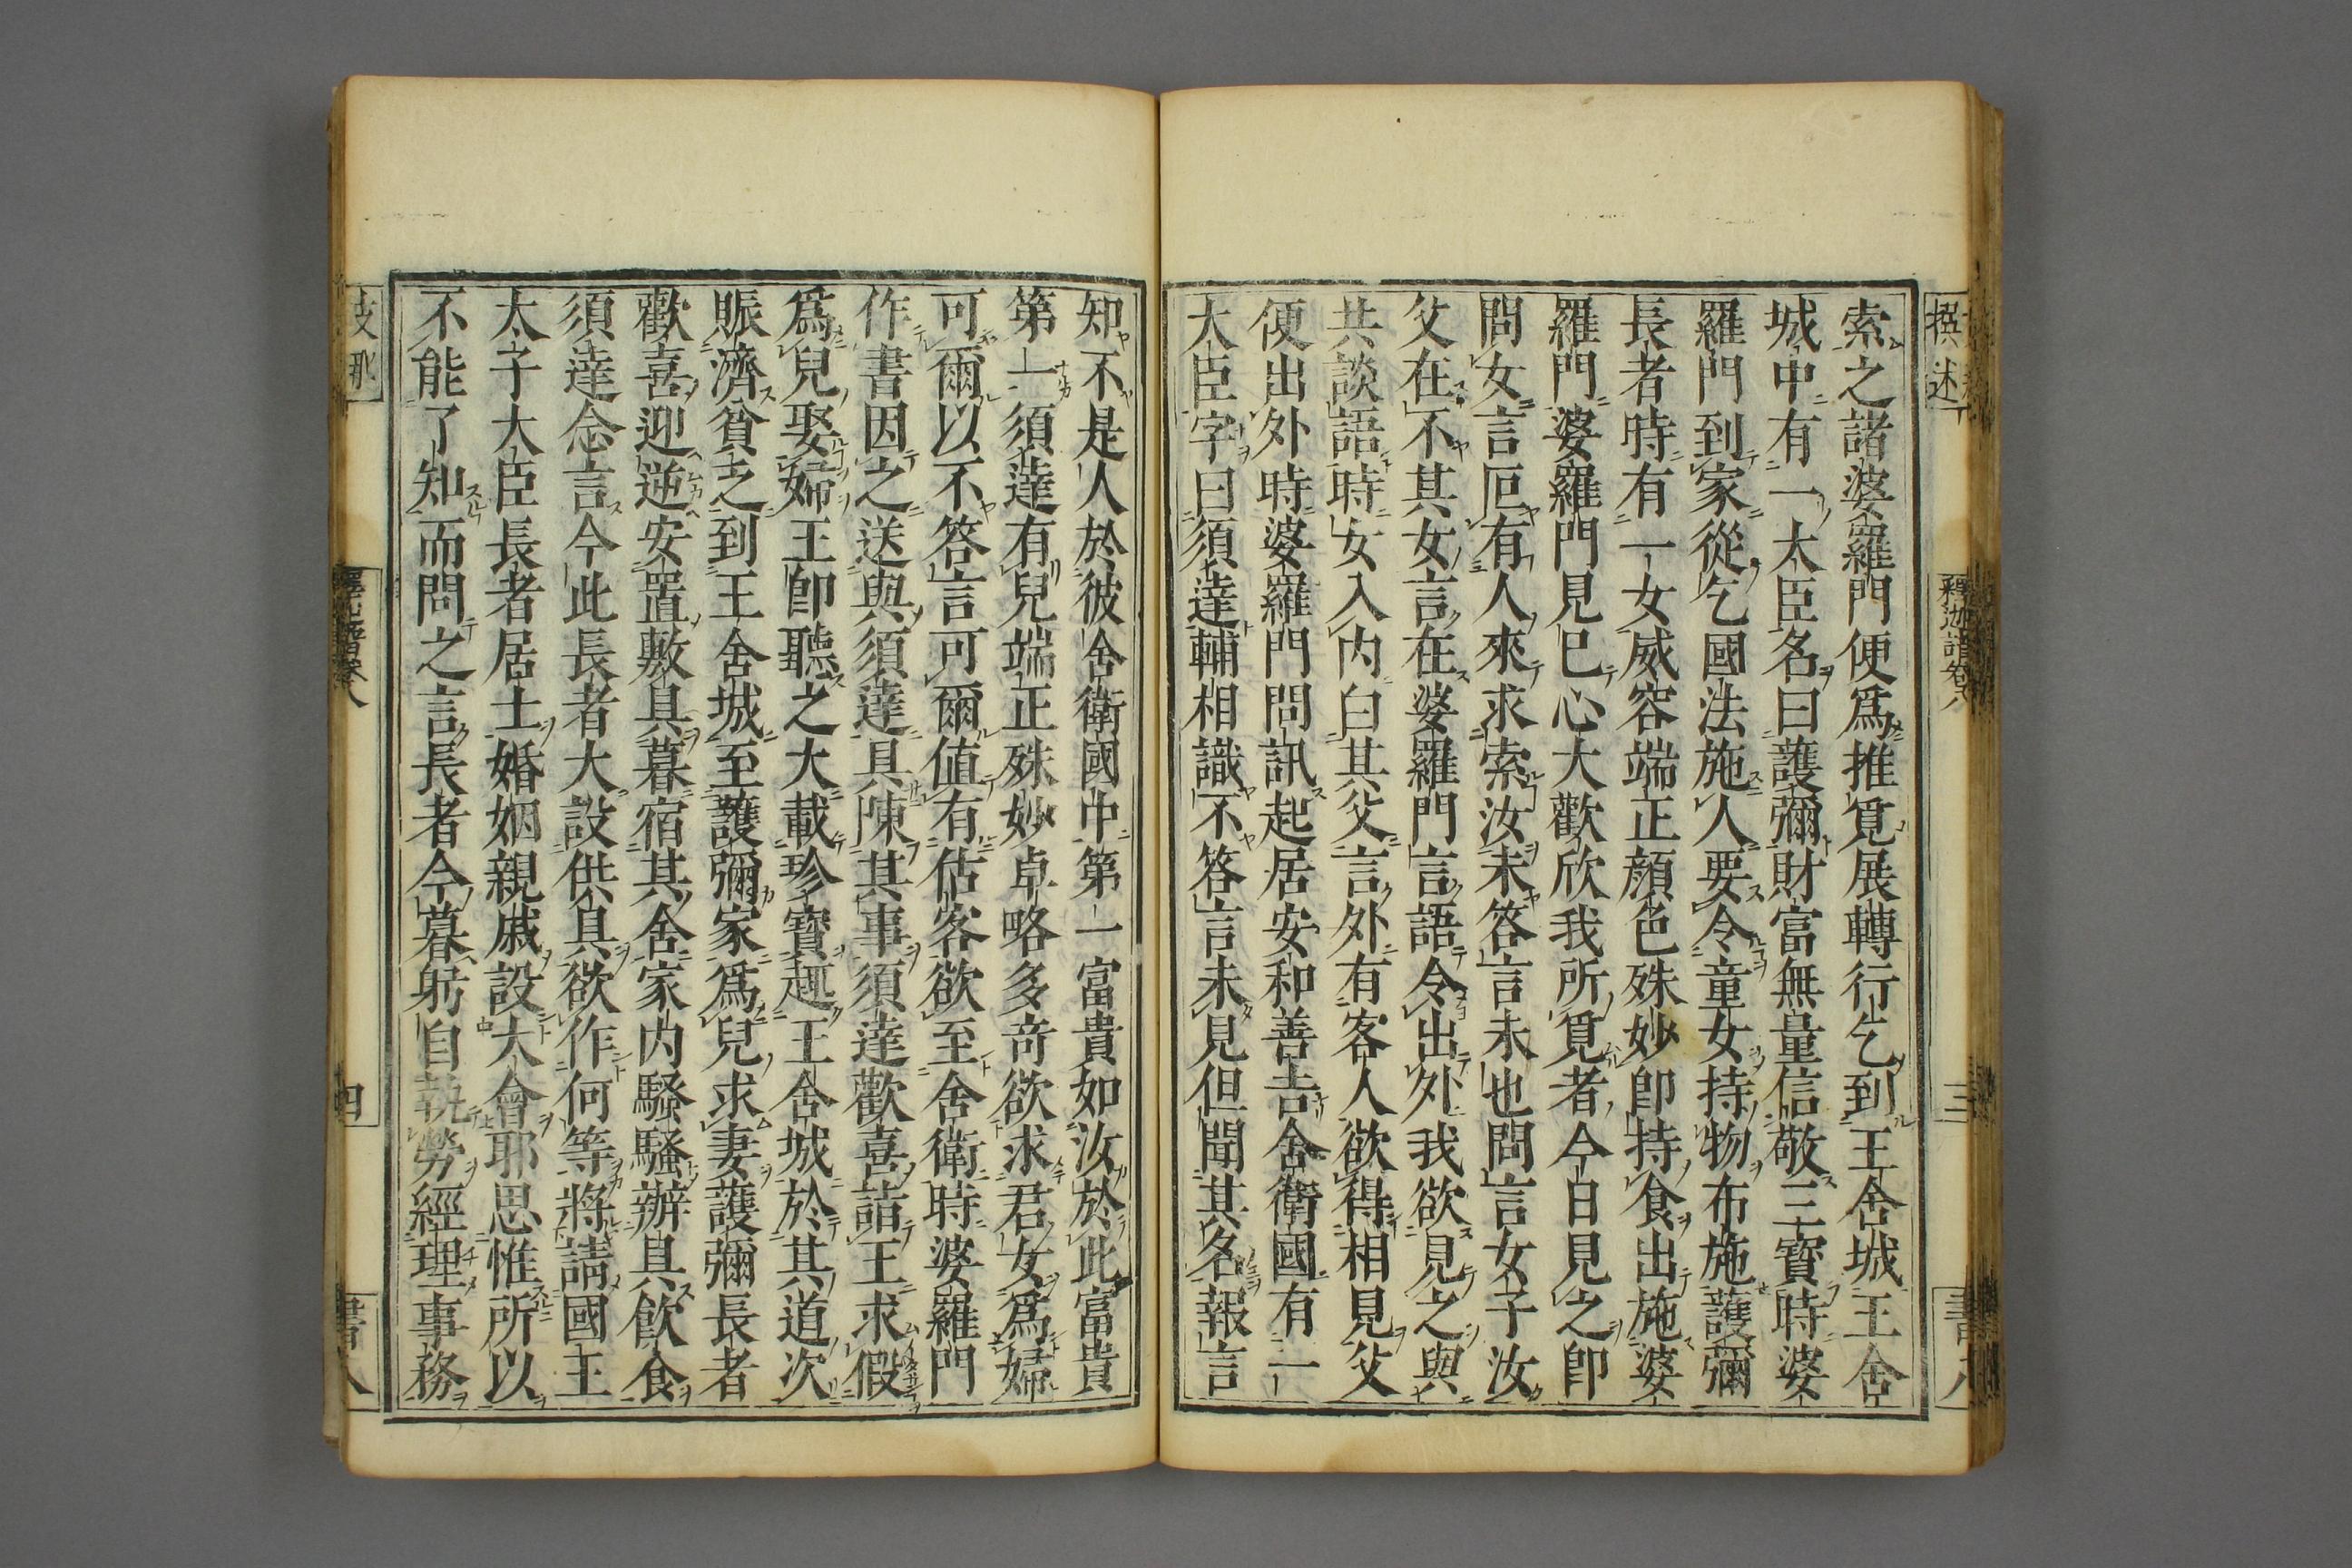 索之諸婆羅門便爲推覓展轉行乞到王舍城王舍
城中有一大臣名曰護彌財富無量信敬三寶時婆
羅門到家從乞國法施人要令童女持物布施護彌
長者時有一女威容端正顏色殊妙卽持食出施婆
羅門婆羅門見已心大歡欣我所覓者今日見之卽
問女言叵有人來求索汝未答言未也問言女子汝
父在不其女言在婆羅門言語令出外我欲見之與
共談語時女入內白其父言外有客人欲得相見父
便出外時婆羅門問訊起居安和善吉舍衛國有一
大臣字曰須達輔相識不答言未見但聞其名報言
知不是人於彼舍衛國中第一富貴如汝於此富貴
第一須達有兒端正殊妙卓略多奇欲求君女爲婦
可爾以不答言可爾値有估客欲至舍衛時婆羅門
作書因之送與須達具陳其事須達歡喜詣王求假
爲兒娶婦王卽聽之大載珍寶趣王舍城於其道次
賑濟貧乏到王舍城至護彌家爲兒求妻護彌長者
歡喜迎逆安置敷具暮宿其舍家內騷騷辦具飮食
須達念言今此長者大設供具欲作何等將請國王
太子大臣長者居士婚姻親戚設大會耶思惟所以
不能了知而問之言長者今暮躬自執勞經理事務
撰述
釋迦譜卷八
三
支那
四